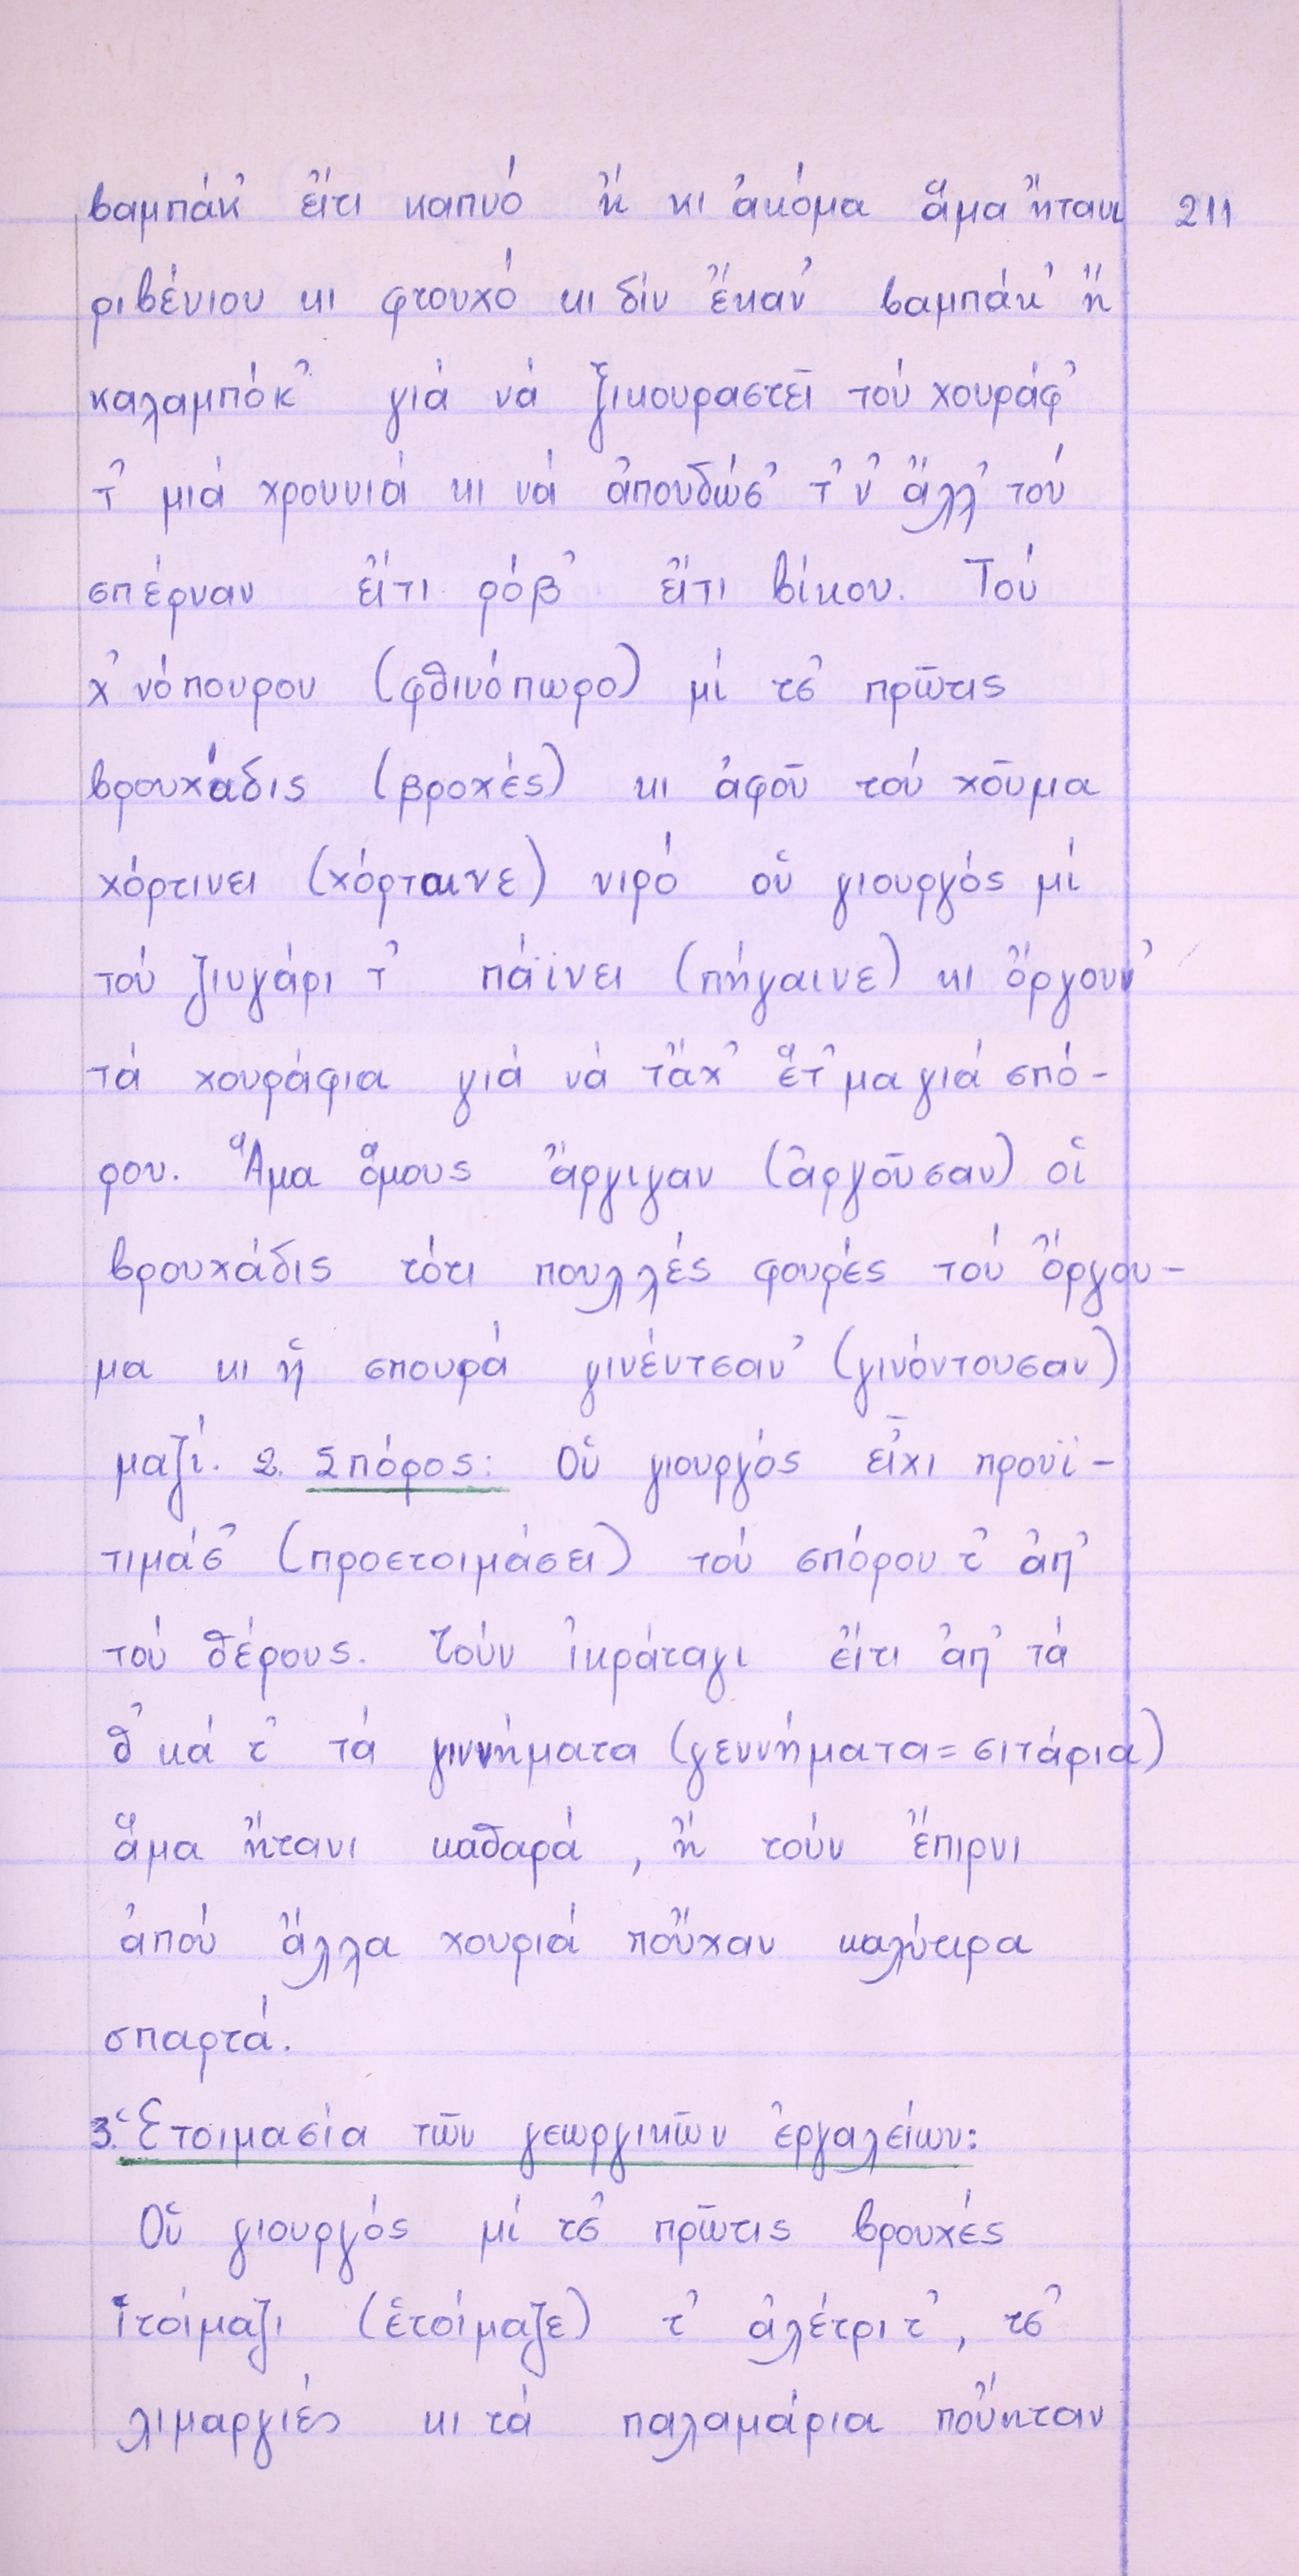 βαμπάκ᾿ εἴτι καπνό ἤ κι ἀκόμα ἅμα ἤτανι 211
ριβένιου κι φτουχό κι δίν ἔκαν᾿ βαμπάκ᾿ ἤ
καλαμπόκ᾿ γιά νά ξικουραστεῖ τού χουράφ᾿
τ᾿ μιά χρουνιά κι νά ἀπουδώσ᾿ τ᾿ν᾿ ἄλλ᾿ τού
σπέρναν εἴτι ρόβ᾿ εἴτι βίκου. Τού
χ᾿νόπουρου (φθινόπωρο) μί τσ᾿ πρῶτις
βρουχάδις (βροχές) κι ἀφοῦ τού χοῦμα
χόρτινει (χόρταινε) νιρό οὑ γιουργός μί
τού ζιυγάρι τ᾿ πάϊνει (πήγαινε) κι ὄργουν᾿
τά χουράφια γιά νά τἄχ᾿ ἕτ᾿μα γιά σπό-
ρου. Ἅμα ὅμους ἄργιγαν (ἀργοῦσαν) οἱ
βρουχάδις τότι πουλλές φουρές τού ὄργου-
μα κι ἡ σπουρά γινέντσαν᾿ (γινόντουσαν)
μαζί. 2. Σπόρος: Οὑ γιουργός εἶχι προυϊ-
τιμάσ᾿ (προετοιμάσει) τού σπόρου τ᾿ ἀπ᾿
τού θέρους. Τούν ἰκράταγι εἴτι ἀπ᾿ τά
θ᾿κά τ᾿ τά γιννήματα (γεννήματα = σιτάρια)
ἅμα ἤτανι καθαρά, ἤ τούν ἔπιρνι
ἀπού ἄλλα χουριά ποὔχαν καλύτιρα
σπαρτά.
3. Ἑτοιμασία τῶν γεωργικῶν ἐργαλείων:
Οὑ γιουργός μί τσ᾿ πρῶτις βρουχές
ἱτοίμαζι (ἑτοίμαζε) τ᾿ ἀλέτρι τ᾿, τσ᾿
λιμαργιές κι τά παλαμάρια ποὔηταν